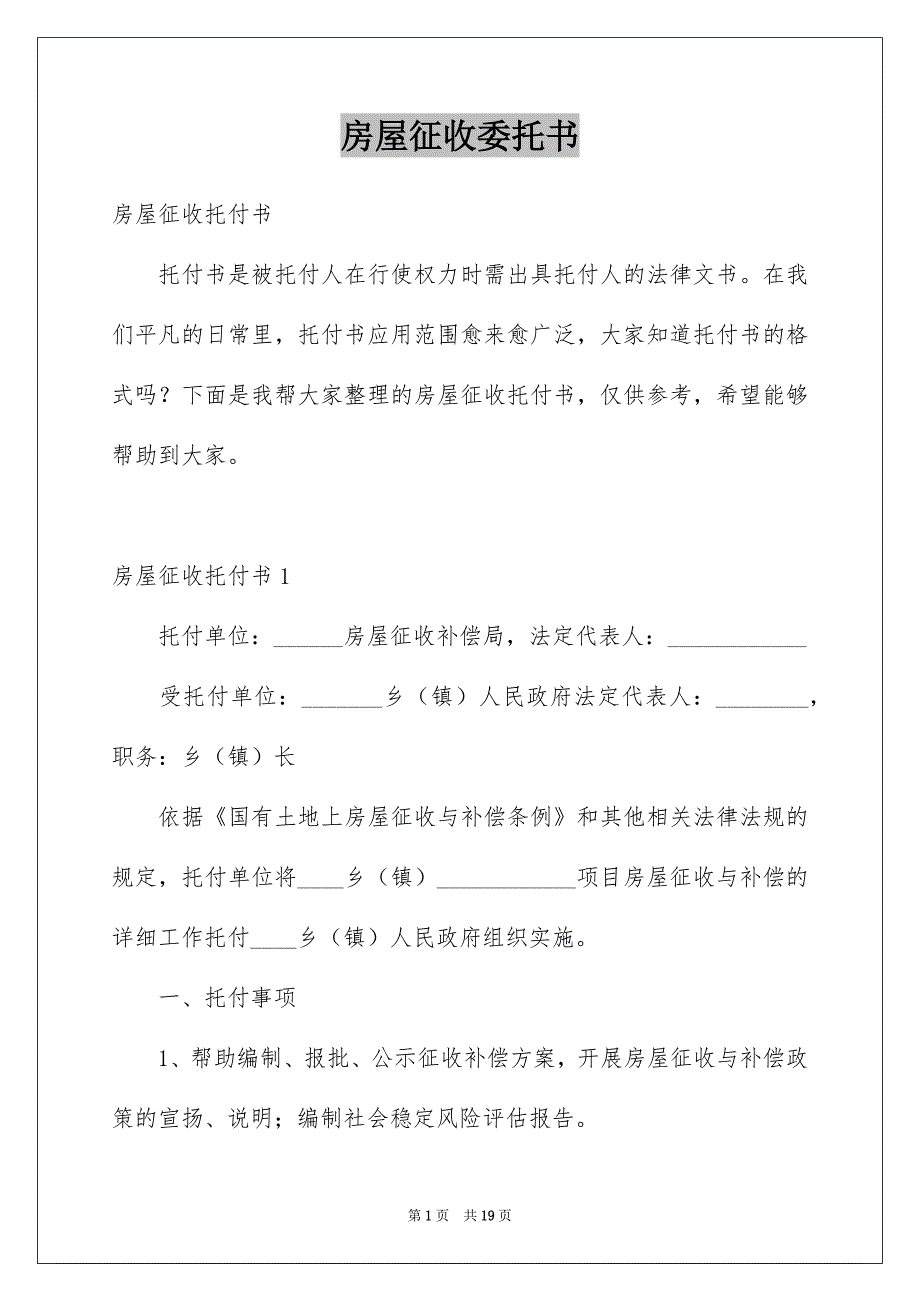 房屋征收委托书
房屋征收托付书
托付书是被托付人在行使权力时需出具托付人的法律文书。在我
们平凡的日常里，托付书应用范围愈来愈广泛，大家知道托付书的格
式吗？下面是我帮大家整理的房屋征收托付书，仅供参考，希望能够
帮助到大家。
房屋征收托付书 1
托付单位：______房屋征收补偿局，法定代表人：____________
受托付单位：_______乡（镇）人民政府法定代表人：________，
职务：乡（镇）长
依据《国有土地上房屋征收与补偿条例》和其他相关法律法规的
规定，托付单位将____乡（镇）____________项目房屋征收与补偿的
详细工作托付____乡（镇）人民政府组织实施。
一、托付事项
1、帮助编制、报批、公示征收补偿方案，开展房屋征收与补偿政
策的宣扬、说明；编制社会稳定风险评估报告。
第 1 页 共 19 页